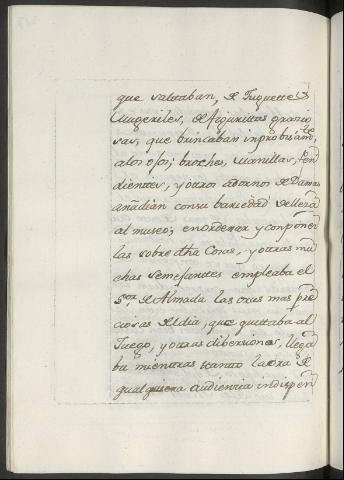 que saltaban, de Juguettes
Mugeriles, de figurittas gracio
sas, que brincaban
alos ojos; broches, manillas, Pen
dientes, y otros adornos de Damas
añadian consu bariedad velleza
al museo; en ordenar, y componer
las sobre dhas Cosas, y otras mu
chas semejanttes empleaba el
Sor. de Almada las oras mas pre
ciosas del dia, que quittaba al
Juego, y ottras dibersiones, llega
ba mienttras tantto la ora de
qualquiera audiencia indispen